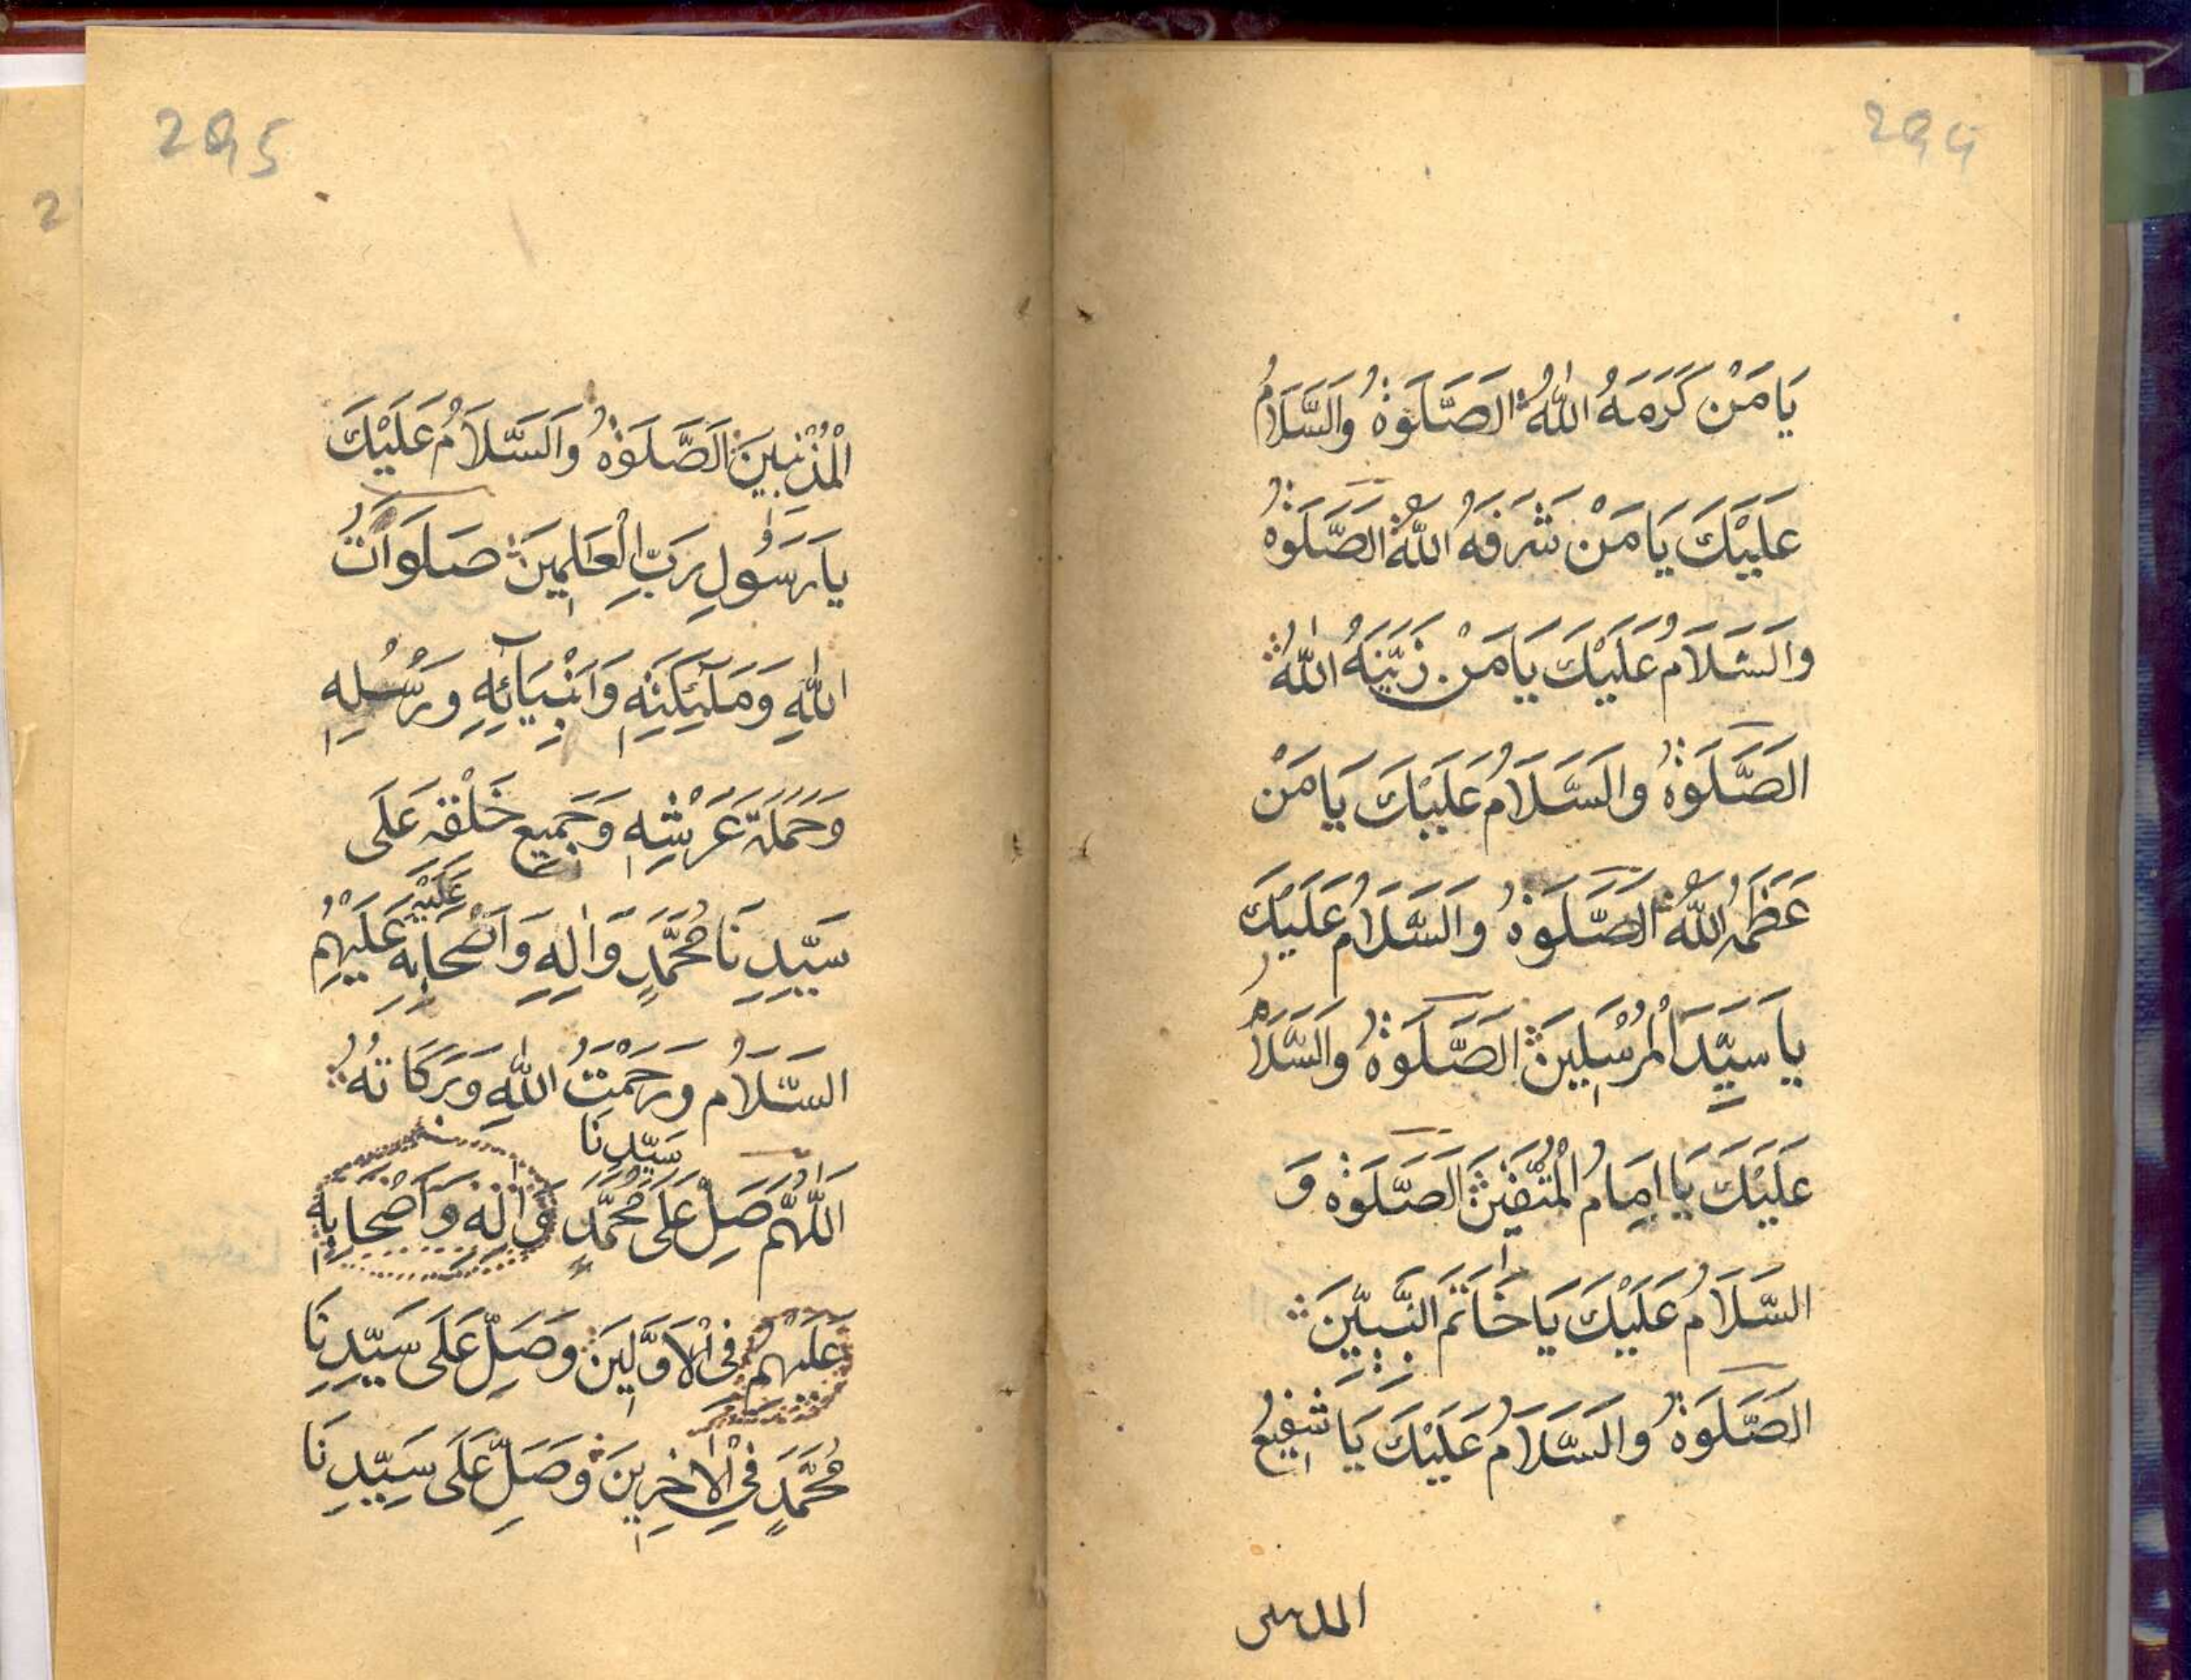 294
يَا مَنْ كَرَمَهُ اللهُ الصَّلَوٰةُ وَالسَّلَامُ
عَلَيْكَ يَا مَنْ شَرَفَهُ اللهُ الصَّلَوٰةُ
وَالسَّلَامُ عَلَيْكَ يَا مَنْ زَيَّنَهُ اللهُ
الصَّلَوٰةُ وَالسَّلَامُ عَلَيْكَ يَا مَنْ
عَظَمَهُ اللهُ الصَّلَوٰةُ وَالسَّلَامُ عَلَيْكَ
يَا سَيِّدَ الْمُرْسَلِينَ الصَّلَوٰةُ وَالسَّلَامُ
عَلَيْكَ يَا اِمَامُ الْمُتَّقِينَ الصَّلَوٰةُ وَ
السَّلَامُ عَلَيْكَ يَا خَاتَمَ النَّبِيِّينَ
الصَّلَوٰةُ وَالسَّلَامُ عَلَيْكَ يَا شَفِيعُ
المذنبين
295
الْمُذْنِبِينَ الصَّلَوٰةُ وَالسَّلَامُ عَلَيْكَ
يَا رَسُولِ رَبِّ الْعَالَمِينَ صَلَوَاتُ
اللهِ وَمَلَئِكَتِهِ وَاَنْبِيَائِهِ وَرُسُلِهِ
وَحَمَلَةِ عَرْشِهِ وَجَمِيعِ خَلْقِهِ عَلَى
سَيِّدِنَا مُحَمَّدٍ وَاٰلِهِ وَاَصْحَابِهِ عَلَيْهِ عَلَيْهِمُ
السَّلَامُ وَرَحْمَتُ اللهِ وَبَرَكَاتُهُ
اَللّٰهُمَّ صَلِّ عَلَى سَيِّدِنَا مُحَمَّدٍ وَاٰلِهِ وَاَصْحَابِهِ
عَلَيْهِمُ فِي الْاَوَّلِينَ وَصَلِّ عَلَى سَيِّدِنَا
مُحَمَّدٍ فِي الْاٰخِرِينَ وَصَلِّ عَلَى سَيِّدِنَا